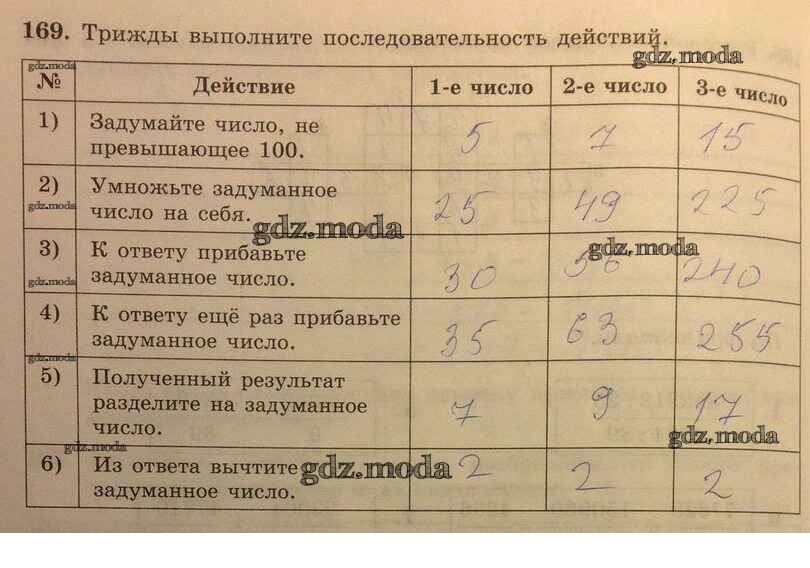 169. Трижды выполните последовательность действий.
gdz.moda
gdz.moda
№ Действие 1-е число 2-е число 3-е число
1) Задумайте число, не
превышающее 100.
5 7 15
2) Умножьте задуманное
gdz.moda
число на себя.
25 49 225
gdz.moda
3) К ответу прибавьте
gdz.moda
gdz.moda
задуманное число.
30 56 240
4) К ответу ещё раз прибавьте
задуманное число.
35 63 255
gdz.moda
5) Полученный результат
разделите на задуманное
число.
7 9 17
gdz.moda
gdz.moda
6) Из ответа вычтите
gdz.moda
задуманное число.
2 2 2